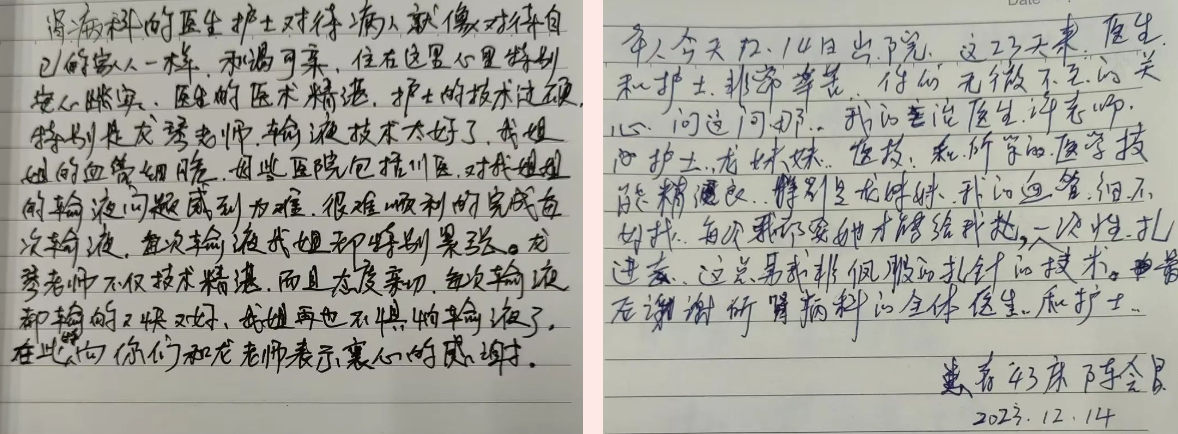 肾病科的医生护士对待病人就像对待自
己的家人一样，和谒可亲，住在这里心里特别
安心踏实、医生的医术精湛，护士的技术过硬，
特别是龙琴老师，输液技术太好了，我姐
姐的血管细脆，一些医院包括川医，对我姐姐
的输液问题感到为难，很难顺利的完成每
次输液，每次输液我姐都特别紧张。龙
琴老师不仅技术精湛，而且态度亲切，每次输液
都输的又快又好，我姐再也不惧怕输液了。
在此，向你们和龙老师表示衷心的感谢！
Date
本人今天12.14日出院，这23天来，医生
和护士非常辛苦，你们无微不至的关
心，问这问那，我的主治医生许老师，
的护士龙妹妹，医技，和所学的医学技
能精良，特别是龙妹妹，我的血管细不
好找，每次我都要她才能给我扎，一次性扎
进去，这点另我非佩服的扎针的技术。最
后谢谢所肾病科的全体医生和护士
患者43床陈会
2023.12.14